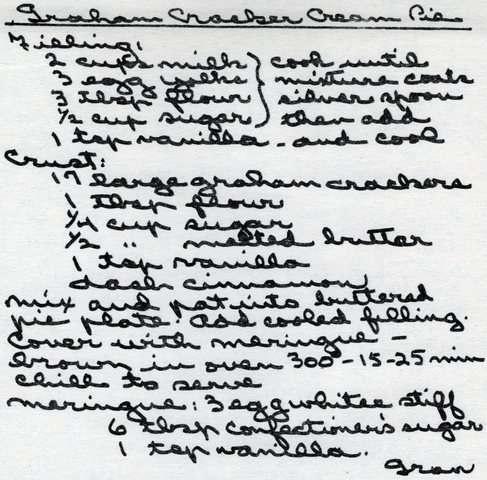 Graham Cracker Cream Pie
Filling:
2 cups milk } cook until
3 egg yolks } mixture coats
3 tbsp flour } silver spoon
1/2 cup sugar } then add
1 tsp vanilla - and cool
Crust:
17 large graham crackers
1 tbsp flour
1/4 cup sugar
1/2 " melted butter
1 tsp vanilla
dash cinnamon
mix and pat into buttered
pie plate. Add cooled filling.
Cover with meringue -
brown in oven 300-15-25 min
chill to serve
meringue: 3 egg whites stiff
6 tbsp confectioner's sugar
1 tsp vanilla.
Gran